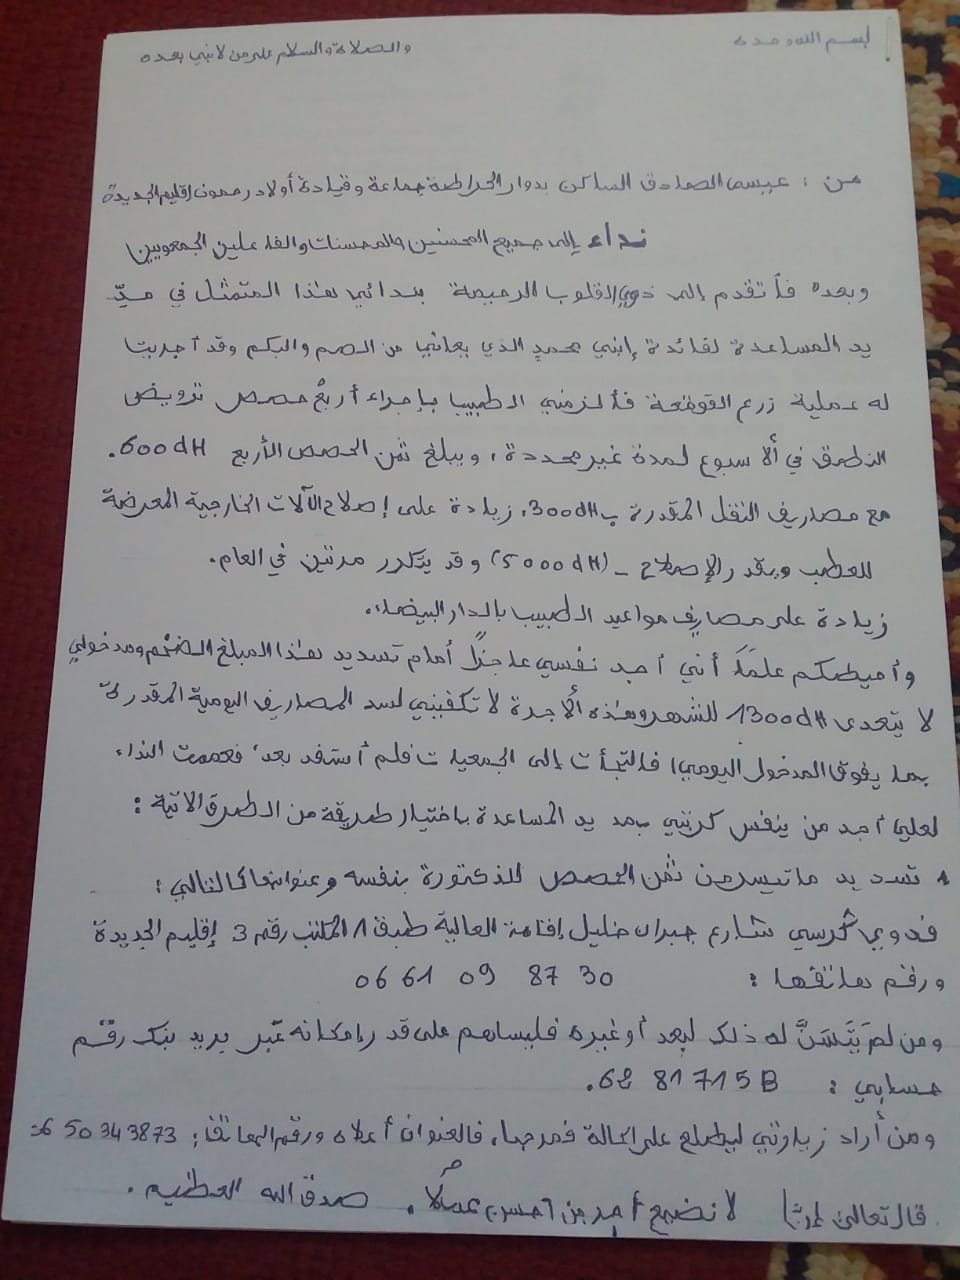 بسم الله وحده والصلاة والسلام على من لا نبي بعده
من : عيسى الصادق الساكن بدوار الخرارطة جماعة وقيادة أولاد رحمون إقليم الجديدة
نداء إلى جميع المحسنين والمحسنات والفاعلين الجمعويين
وبعده فأتقدم إلى ذوي القلوب الرحيمة بندائي هذا المتمثل في مدّ
يد المساعدة لفائدة إبني محمد الذي يعاني من الصم والبكم وقد أجريت
له عملية زرع القوقعة فألزمني الطبيب بإجراء أربع حصص ترويض
النطق في الأسبوع لمدة غير محددة، ويبلغ ثمن الحصص الأربع 600dH.
مع مصاريف النقل المقدرة ب 300dH، زيادة على إصلاح الآلات الخارجية المعرضة
للعطب ويقدر الإصلاح ـ (5000dH) وقد يتكرر مرتين في العام.
زيادة على مصاريف مواعيد الطبيب بالدار البيضاء.
وأحيطكم علمًا أني أجد نفسي عاجزًا أمام تسديد هذا المبلغ الضخم ومدخولي
لا يتعدى 1300dH للشهر وهذه الأجرة لا تكفيني لسد المصاريف اليومية المقدرة
بما يفوق المدخول اليومي، فالتجأت إلى الجمعيات فلم أستفد بعد، فعممت النداء
لعلي أجد من ينفس كربتي بمد يد المساعدة باختيار طريقة من الطرق الآتية :
1 تسديد ما تيسر من ثمن الحصص للدكتورة بنفسه وعنوانها كالتالي :
فدوى كرسي شارع جبران خليل إقامة العالية طبق 1 المكتب رقم 3 إقليم الجديدة
ورقم هاتفها : 06 61 09 87 30
ومن لم يَتَسَنَّ له ذلك لبعد أو غيره فليساهم على قدر إمكانه عبر بريد بنك رقم
حسابي : 62 81715B.
ومن أراد زيارتي ليطلع على الحالة فمرحبا، فالعنوان أعلاه ورقم الهاتف: 0650343873
قال تعالى إنا لا نضيع أجر من أحسن عملًا. صدق الله العظيم.